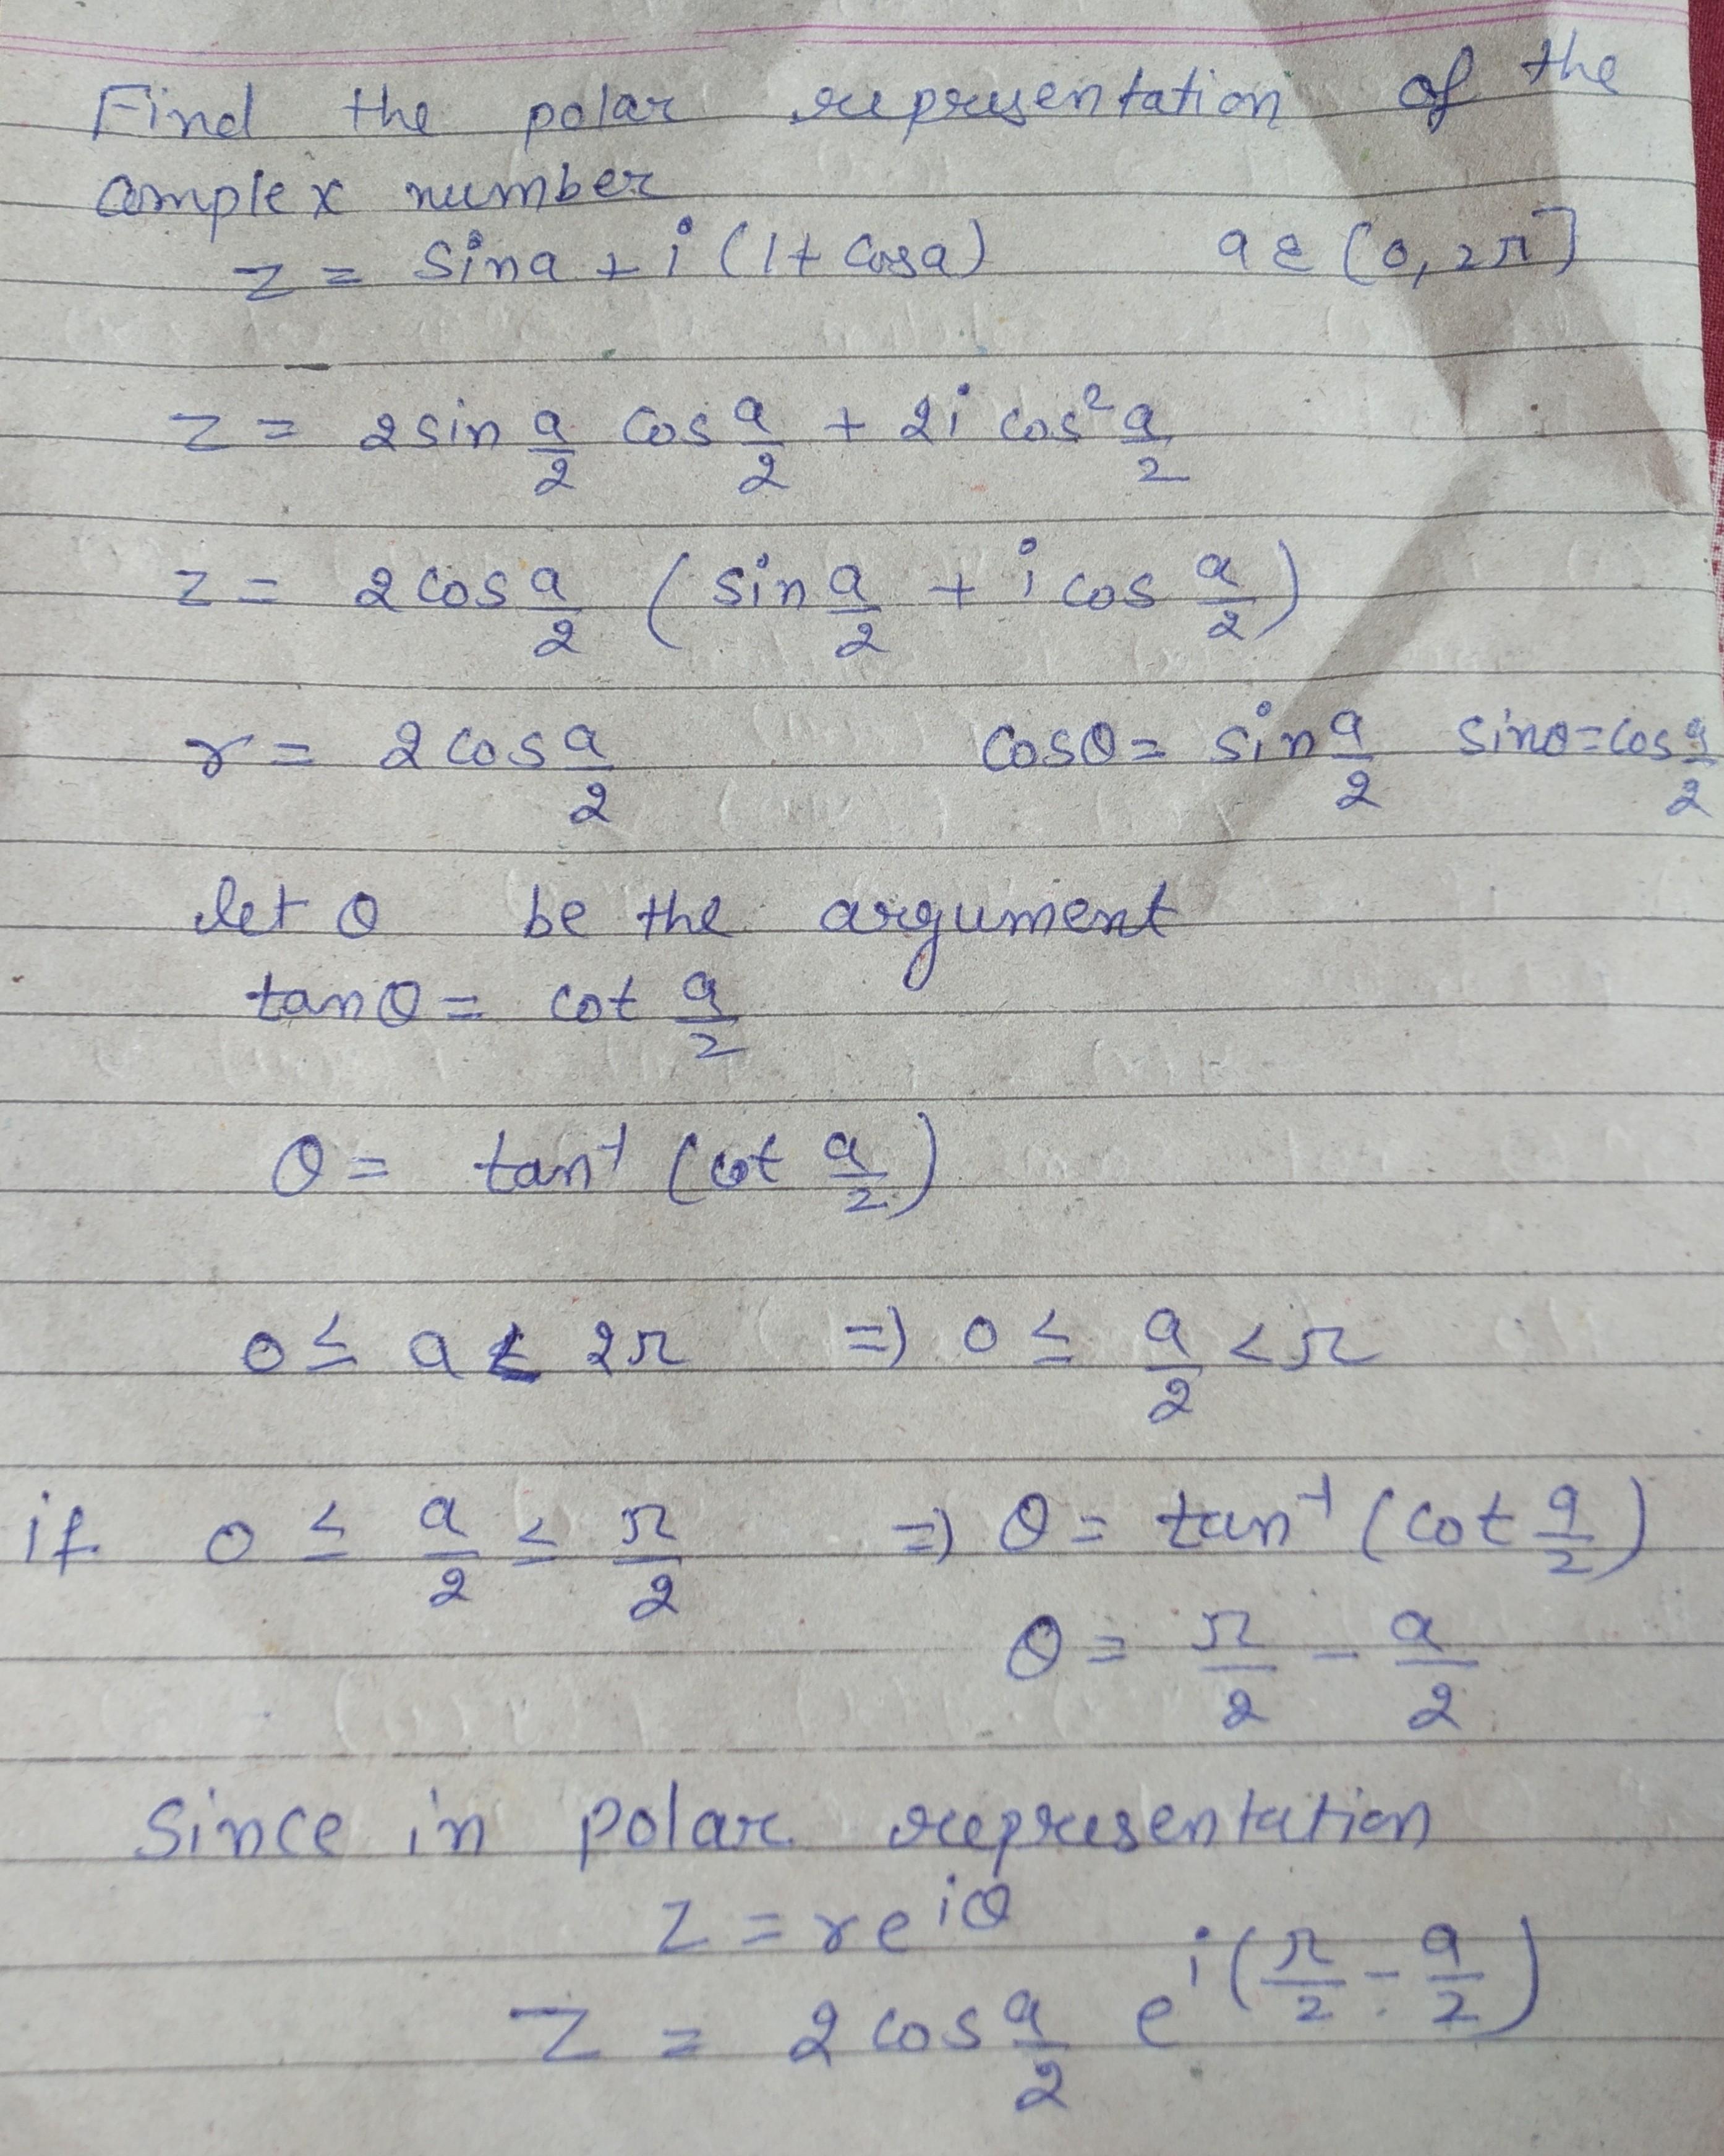 Find the polar representation of the
complex number
z = sina + i (1 + cosa) a ε (0, 2π]
z = 2 sin a/2 cos a/2 + 2i cos² a/2
z = 2 cos a/2 (sin a/2 + i cos a/2)
r = 2 cos a/2 cosθ = sin a/2 sinθ = cos a/2
let θ be the argument
tanθ = cot a/2
θ = tan⁻¹ (cot a/2)
0 ≤ a < 2π => 0 ≤ a/2 < π
if 0 ≤ a/2 ≤ π/2 => θ = tan⁻¹ (cot a/2)
θ = π/2 - a/2
Since in polar representation
z = re^iθ
z = 2 cos a/2 e^i(π/2 - a/2)